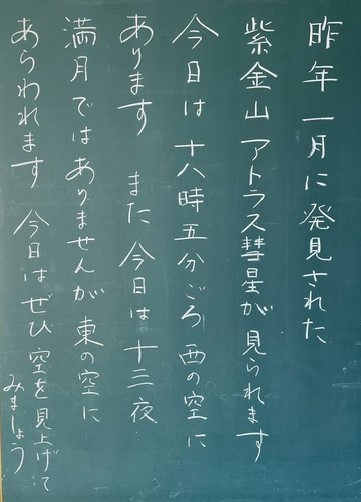 昨年一月に発見された
紫金山アトラス彗星が見られます
今日は十八時五分ごろ西の空に
あります　また今日は十三夜
満月ではありませんが東の空に
あらわれます　今日はぜひ空を見上げて
みましょう